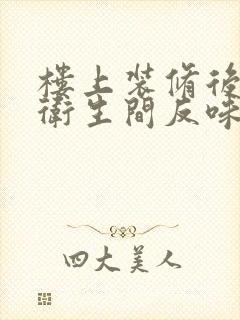 樓上装脩後
衛生間反味
四大美人